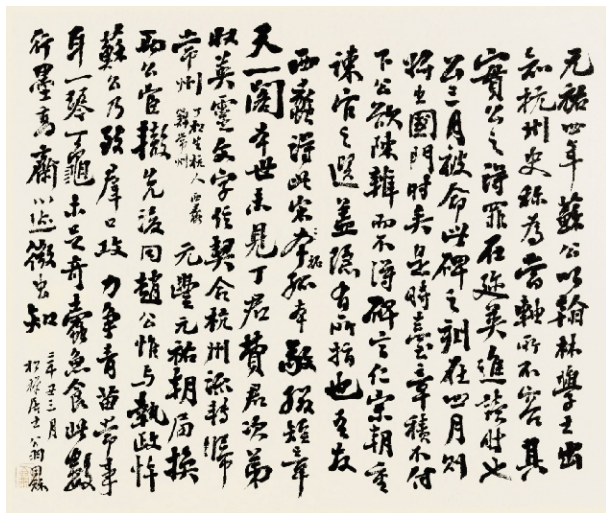 元祐四年蘇公以翰林學士出
知杭州史稱為當軸所不容其
實公之得罪在邇英進讀時也
公三月被命此碑之刻在四月則
將出國門時矣是時臺章積不付
下公欲陳辯而不得碑言仁宗朝重
諫官之選蓋隱有所指也吾友
西蠡得此宋本孤本敬綴短章
天一閣本世未見丁君費君次第
收英靈文字信契合杭州流轉歸
常州丁松生杭人西蠡籍常州元豐元祐朝局換
兩公宦轍先後同趙公惟与執政忤
蘇公乃致羣口攻力爭青苗常事
耳一琴一龜未足奇蠹魚食此數
行墨高齋以微蟲知
丑三月
松禪居士翁同龢